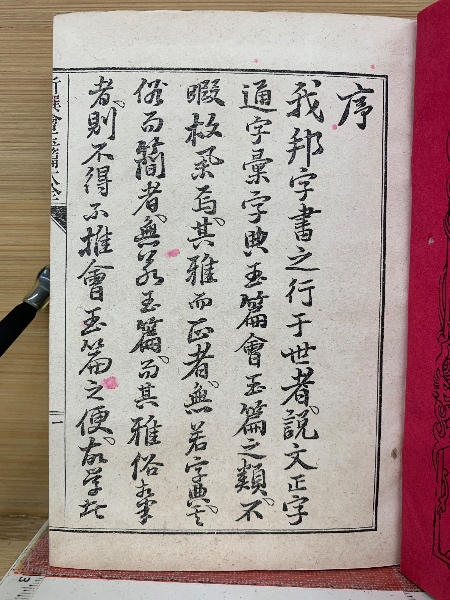 序
我邦字書之行于世者說文正字
通字彙字典玉篇會玉篇之類不
暇枚举焉其雅而正者無若字典其
俗而簡者無若玉篇而其雅俗
者則不得不推會玉篇之便故学
新撰會玉篇大全
一